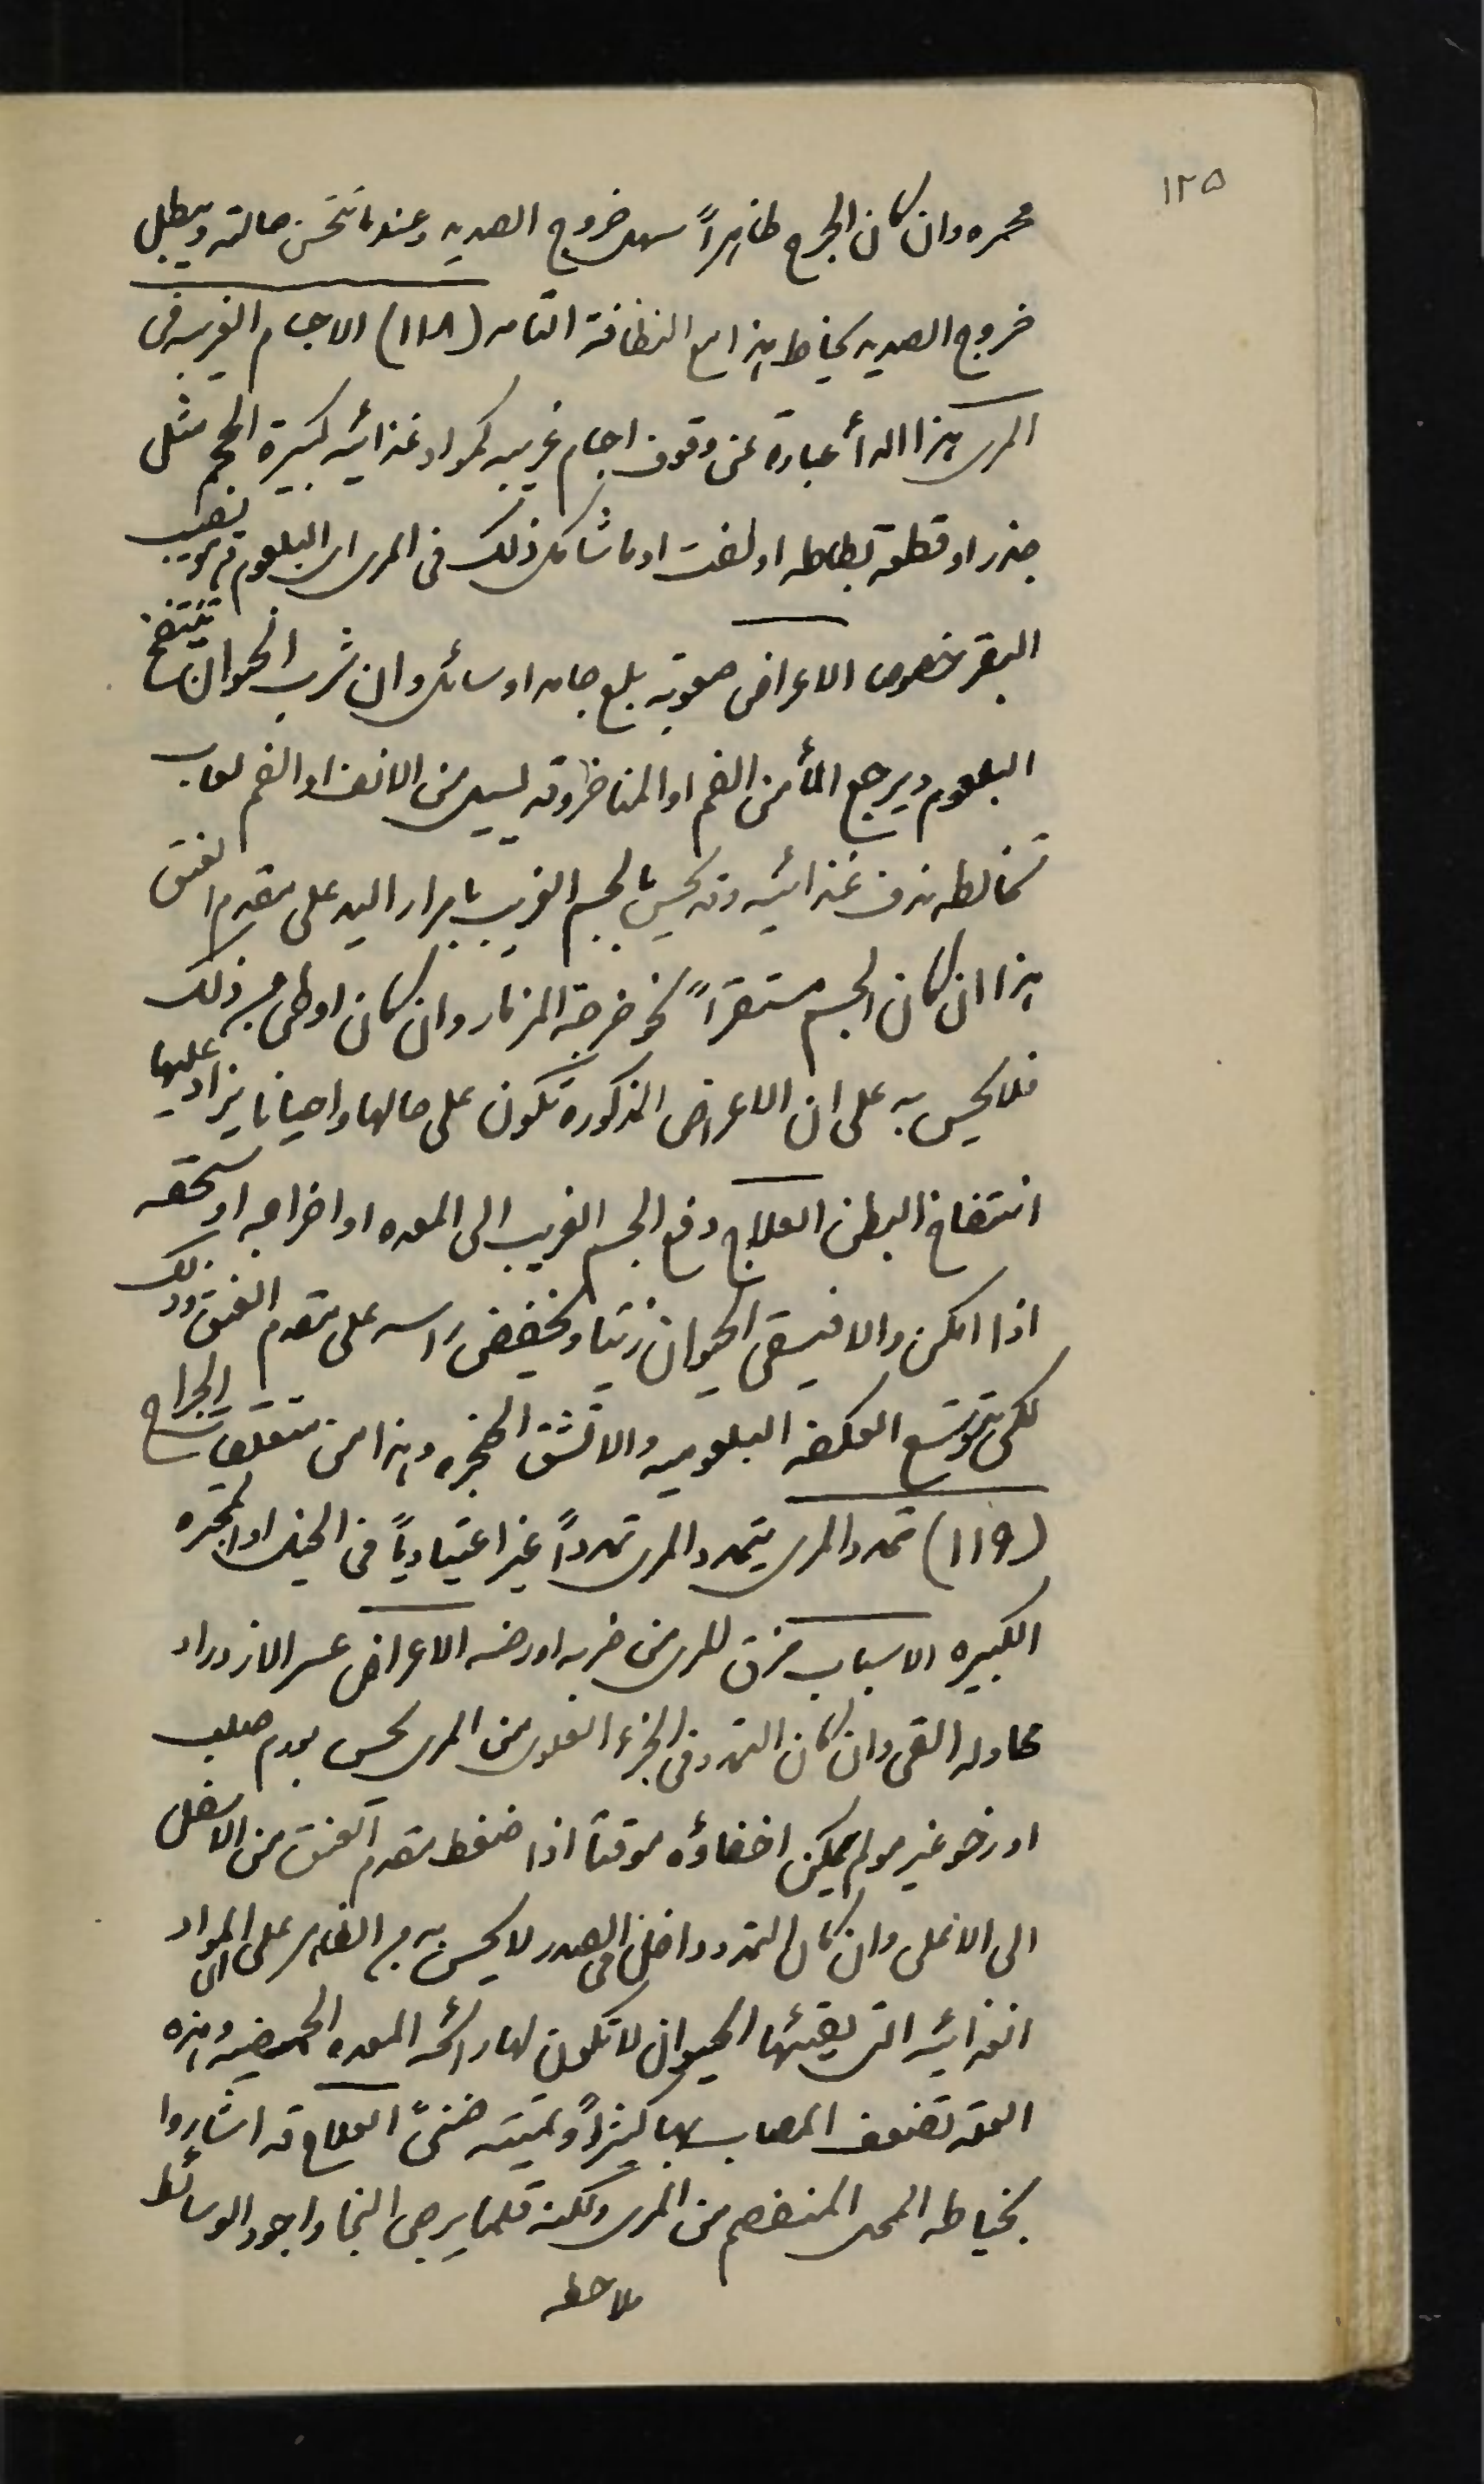 ١٢٥
محمره وان كان الجرح ظاهراً سهل خروج الصديد وعندما تتحسن حالته ويبطل
خروج الصديد يخاط هذا مع النظافة التامه (١١٨) الاجسام الغريبه فى
المرى هذا الدأ عبارة عن وقوف اجسام غريبه كمواد غذائيه كبيرة الحجم مثل
جذر او قطعة بطاطه او لفت او ما شاكل ذلك فى المرى او البلعوم ويصيب
البقر خصوصا الاعراض صعوبة بلع جامد او سائل وان شرب الحيوان ينتفخ
البلعوم ويرجع المأ من الفم او المناخر وقد يسيل من الانف او الفم لعاب
تخالطه مواد غذائيه وقد يحس بالجسم الغريب بامرار اليد على مقدم العنق
هذا ان كان الجسم مستقراً نحو خرجة المزمار وان كان اوطى من ذلك
فلا يحس به على ان الاعراض المذكورة تكون على حالها واحيانا يزاد عليها
انتفاخ البطن العلاج دفع الجسم الغريب الى المعده او اخراجه او سحقه
اذا امكن والا فيسقى الحيوان زيتا ويخفض راسه على مقدم العنق وذلك
لكى يتوسع العكفه البلعوميه والا تشق الحنجره وهذا من متعلقات الجراح
(١١٩) تمدد المرى يتمدد المرى تمدداً غير اعتيادياً فى الخيل او المجتره
الكبيره الاسباب مزق للمرى من ضربه او رضه الاعراض عسر الازدراد
محاولة القى وان كان التمدد فى الجزء العلوى من المرى يحس بورم صلب
او رخو غير مولم يمكن اخفاؤه موقتاً اذا ضغط مقدم العنق من الاسفل
الى الاعلى وان كان التمدد داخل فى الصدر لا يحس به من الظاهر على ان المواد
الغذائيه التى يقيئها الحيوان لا تكون لها رائحة المعده الحمضيه وهذه
العله تضعف المصاب بها كثيراً وتميته ضنىً العلاج قد اشاروا
بخياطه المحل المنفصم من المرى ولكنه قلما يرجى النجا واجود الوسائط
ملاحظه